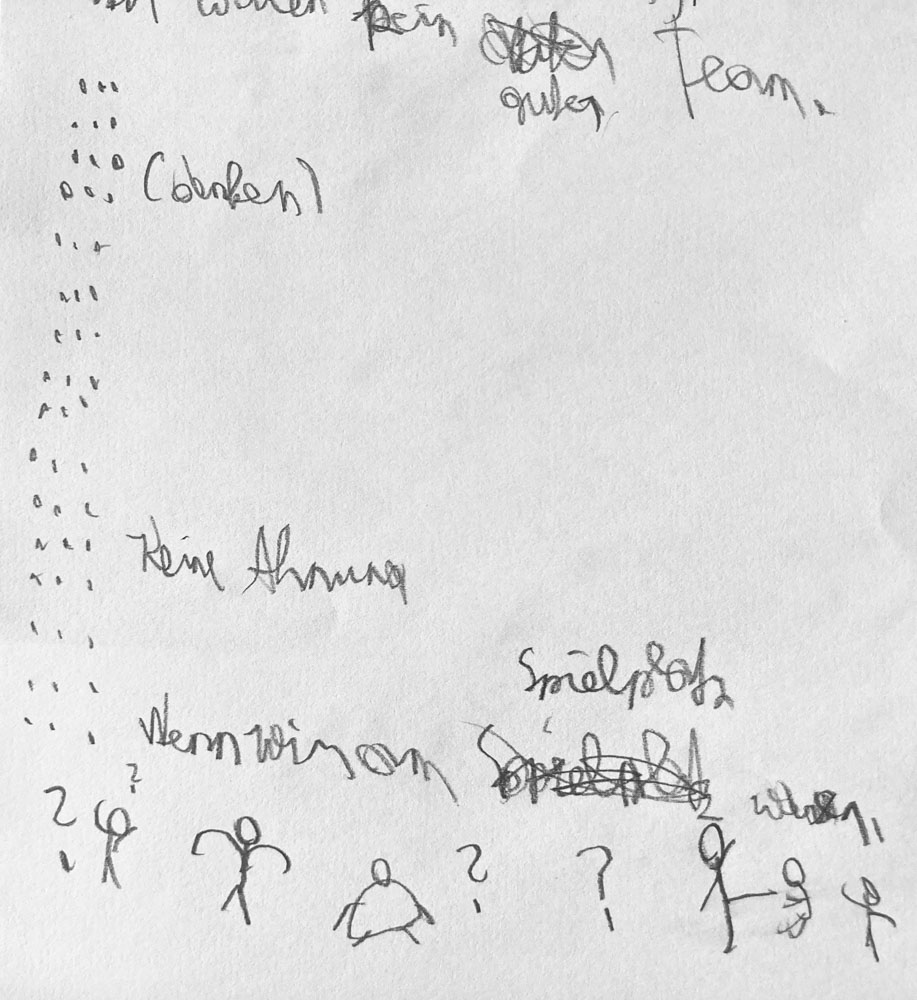 kein guten Team.
(denken)
Keine Ahnung
Wenn wir am Spielplatz
? ?
? ?